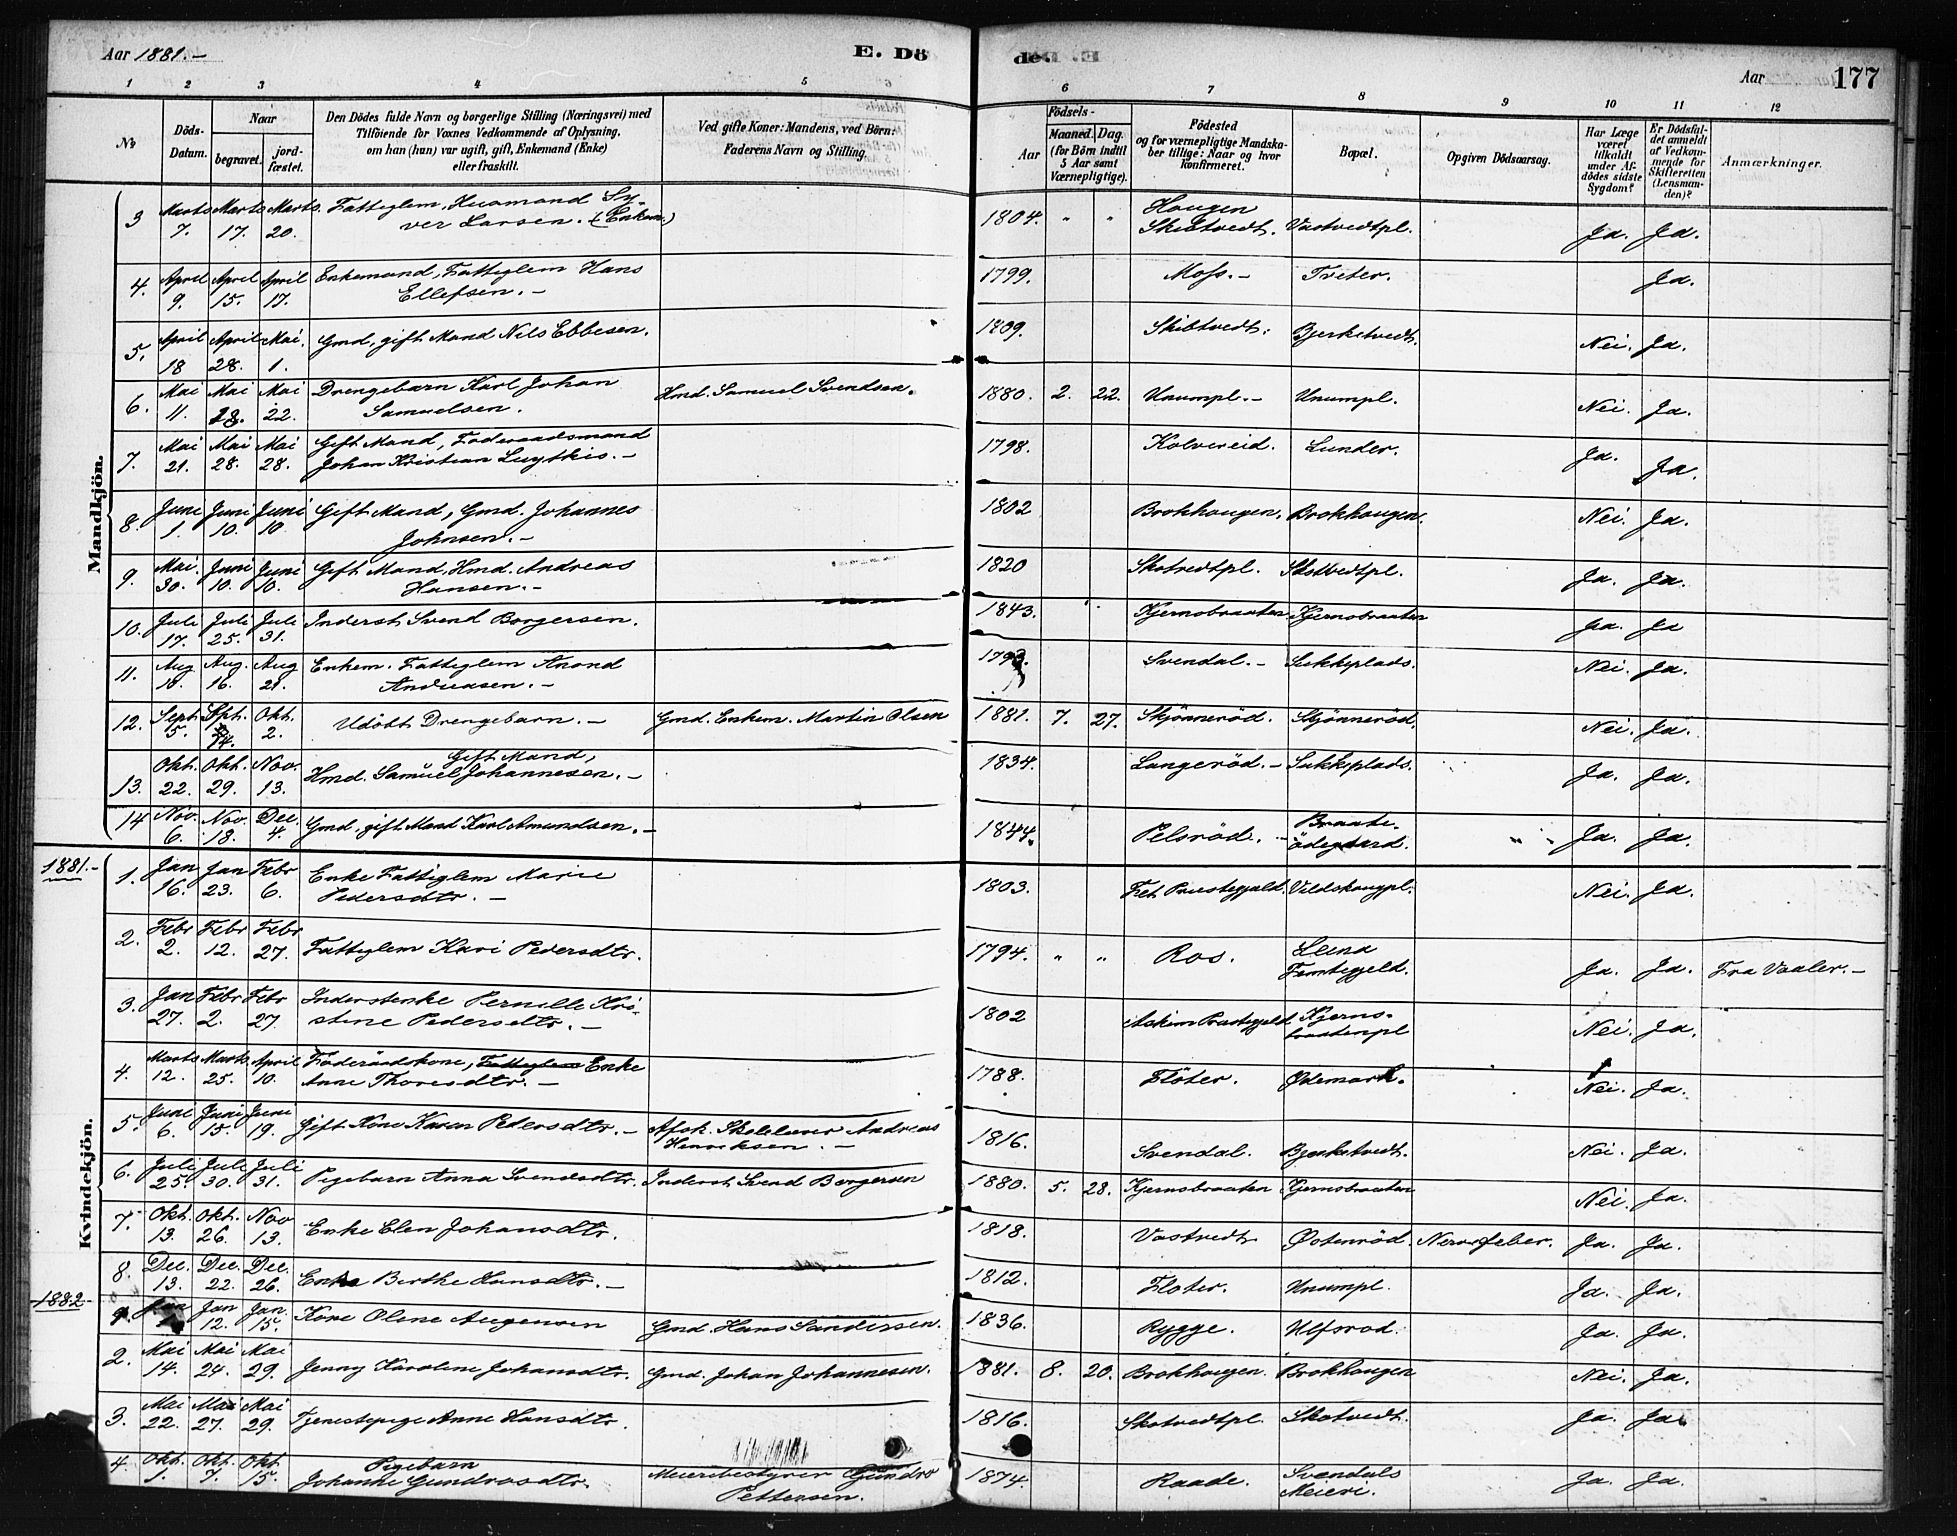 Aar 1881.- E. Dö de. Aar 177
1 2 3 4 5 6 7 8 9 10 11 12
No
Döds-Datum.
Naar
begravet. jord-fæstet.
Den Dödes fulde Navn og borgerlige Stilling (Næringsvei) med
Tilföiende for Voxnes Vedkommende af Oplysning,
om han (hun) var ugift, gift, Enkemand (Enke)
eller fraskilt.
Ved gifte Koner: Mandens, ved Börn:
Faderens Navn og Stilling.
Födsels-
Aar Maaned. Dag.
(for Börn indtil
5 Aar samt
Værnepligtige).
Födested
og for værnepligtige Mandska-
ber tillige: Naar og hvor
konfirmeret.
Bopæl.
Opgiven Dödsaarsag.
Har Læge
været
tilkaldt
under Af-
dödes sidste
Sygdom?
Er Dödsfal-
det anmeldt
af Vedkom-
mende for
Skifteretten
(Lensman-
den)?
Anmærkninger.
Mandkjön.
3 Marts 7. Marts 17. Marts. 20. Fattiglem, Husmand Sy-
ver Larsen. (Enkem.) 1804. " " Haugen
Skibtvedt. Vastvedtpl. Ja. Ja.
4. April 9. April 15. April 17. Enkemand, Fattiglem Hans
Ellefsen.- 1799. Moss.- Tveter. Ja.
5. April 18 April 28. Mai. 1. Gmd, gift Mand Nils Ebbesen. 1809. Skibtvedt. Bjerketvedt. Nei. Ja.
6. Mai 11. Mai 28. Mai 22. Drengebarn Karl Johan
Samuelsen. Hmd. Samuel Svendsen. 1880. 2. 22. Unumpl.- Unumpl. Nei. Ja.
7. Mai 21. Mai 28. Mai 28. Gift Mand, Föderaadsmand
Johan Kristian Luytkis.- 1798. Kolvereid. Lunder. Ja. Ja.
8. Juni 1. Juni 10. Juni 10. Gift Mand, Gmd. Johannes
Johnsen.- 1802 Brokhaugen. Brokhaugen. Nei. Ja.
9. Mai. 30. Juni 10. Juni 10. Gift Mand, Hmd. Andreas
Hansen.- 1820 Skotvedtpl. Skotvedtpl. Ja. Ja.
10. Juli 17. Juli 25. Juli 31. Inderst Svend Borgersen. 1843. Kjernsbraaten Kjernsbraaten Ja. Ja
11. Aug 10. Aug. 16. Aug 21. Enkem. Fattiglem Anond
Andreasen.- Svendal.- Sukkeplads. Nei. Ja.
12. Sept. 5. Spt. 14. Okt. 2. Udöbt Drengebarn.- Gmd. Enkem. Martin Olsen 1881. 7. 27. Skjönneröd. Skjönneröd. Nei. Ja.
13. Okt. 22. Okt. 29. Nov. 13. Gift Mand,
Hmd. Samuel Johannesen.- 1834. Langeröd.- Sukkeplads. Ja. Ja.
14 Nov. 6. Nov. 18. Dec. 4. Gmd. gift Mand Karl Amundsen.- 1844. Pelsröd.- Braate-
ödegaard. " Ja. Ja.
1881.-
Kvindekjön.
1. Jan 16. Jan 23. Febr 6. Enke Fattiglem Marie
Pedersdtr.- 1803. Fet Præstegjeld. Vildskaugpl. Nei. Ja.
2. Febr 2. Febr 12. Febr 27. Fattiglem Kari Pedersdtr. 1794. " " Ros. Lund
Femtegjeld. Ja. Ja. Fra Vaaler.-
3. Jan 27. Febr 2. Febr 27. Inderstenke Pernille Kri-
stine Pedersdtr.- 1802 Askim Præstegjeld Kjerns-
braatenpl Nei. Ja.
4. Marts 12. Marts 25. April 10. Föderaadskone, Fattiglem Enke
Anne Thoresdtr.- 1788. Flöter. Ødemark. Nei. Ja.
5. Juni 6. Juni 15. Juni 19. Gift Kone Karen Pedersdtr.- Afsk. Skolelærer Andreas
Henriksen.- 1816. Svendal. Bjerketvedt. Nei. Ja.
6. Juli 25. Juli 30. Juli 31. Pigebarn Anna Svendsdtr. Inderst Svend Borgersen 1880. 5. 28. Kjernsbraaten Kjernsbraaten Nei. Ja.
7. Okt. 13. Okt. 26. Nov 13. Enke Elen Johansdtr. 1818. Vastvedt Östenröd. Nervefeber. Ja. Ja.
8. Dec. 13. Dec. 22. Dec. 26. Enke Berthe Hansdtr.- 1812. Floter. Unumpl. Ja. Ja.
1882-
1. Jan Jan 12. Jan 15. Kone Olene Augensen Gmd. Hans Sandersen. 1836. Rygge. Ulfsrod. Ja. Ja.
2. Mai 14. Mai 24. Mai 29. Jenny Karoline Johansdtr. Gmd. Johan Johannesen. 1881. 8. 20. Brokhaugen. Brokhaugen Nei. Ja.
3. Mai 22. Mai 27. Mai 29. Tjenestepige Anne Hansdtr 1816. Skotvedtpl. Skotvedt. Ja. Ja
4. Okt. 1. Okt. 7. Okt 15. Pigebarn
Johanne Gundrosdtr. Meieribestyrer Gundro
Pettersen. 1874. Raade. Svendals
Meieri. Ja. Ja.